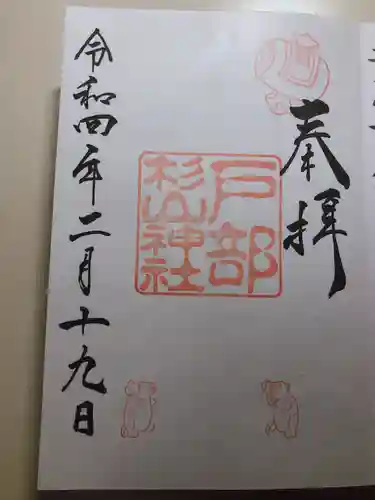 奉拝
戸部
杉山神社
令和四年二月十九日